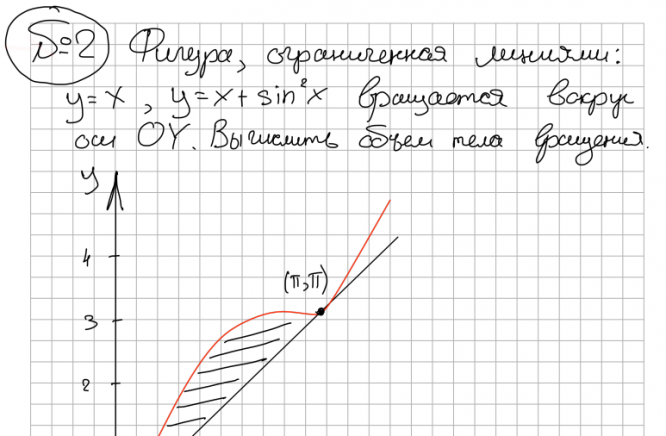 №2 Фигура, ограниченная линиями:
y=x, y=x+sin²x вращается вокруг
оси OY. Вычислить объем тела вращения.
y
4
(π,π)
3
2